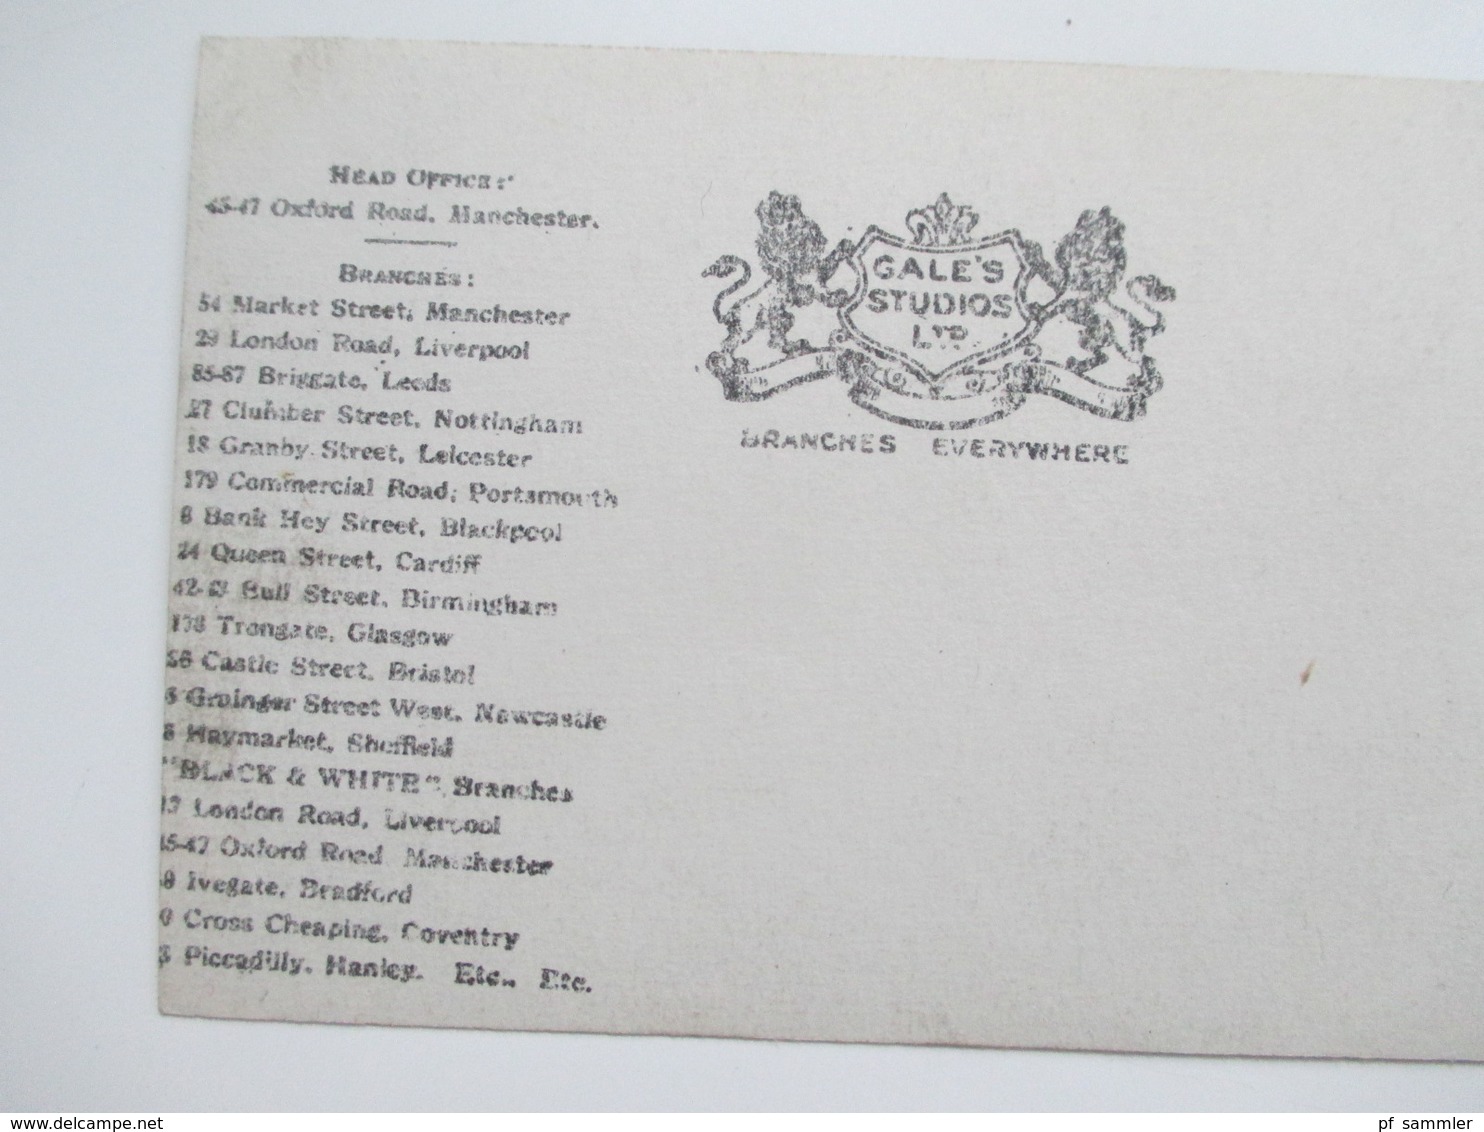 HEAD OFFICE:
45-47 Oxford Road, Manchester.
BRANCHES:
54 Market Street, Manchester
29 London Road, Liverpool
85-87 Briggate, Leeds
27 Clumber Street, Nottingham
18 Granby Street, Leicester
179 Commercial Road, Portsmouth
8 Bank Hey Street, Blackpool
24 Queen Street, Cardiff
Bull Street, Birmingham
Trongate, Glasgow
Castle Street, Bristol
Grainger Street West, Newcastle
Haymarket, Sheffield
"BLACK & WHITE" Branches
London Road, Liverpool
45-47 Oxford Road, Manchester
Ivegate, Bradford
Cross Cheaping, Coventry
Piccadilly, Hanley. Etc., Etc.
GALE'S
STUDIOS
LTD.
BRANCHES EVERYWHERE
www.delcampe.net
pf_sammler